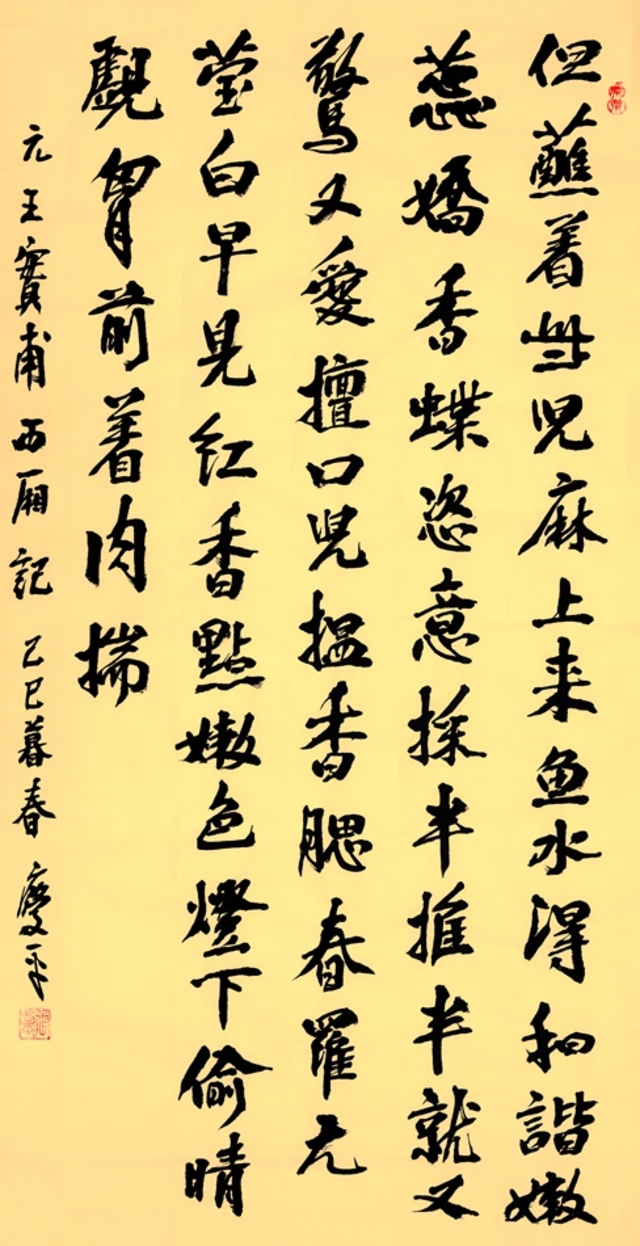 但蘸着些兒麻上来鱼水得和諧嫩
蕊嬌香蝶恣意採半推半就又
驚又愛擅口兒揾香腮春羅元
莹白早見紅香點嫩色燈下偷晴
覷胷前着肉揣
元王實甫西厢記乙巳暮春